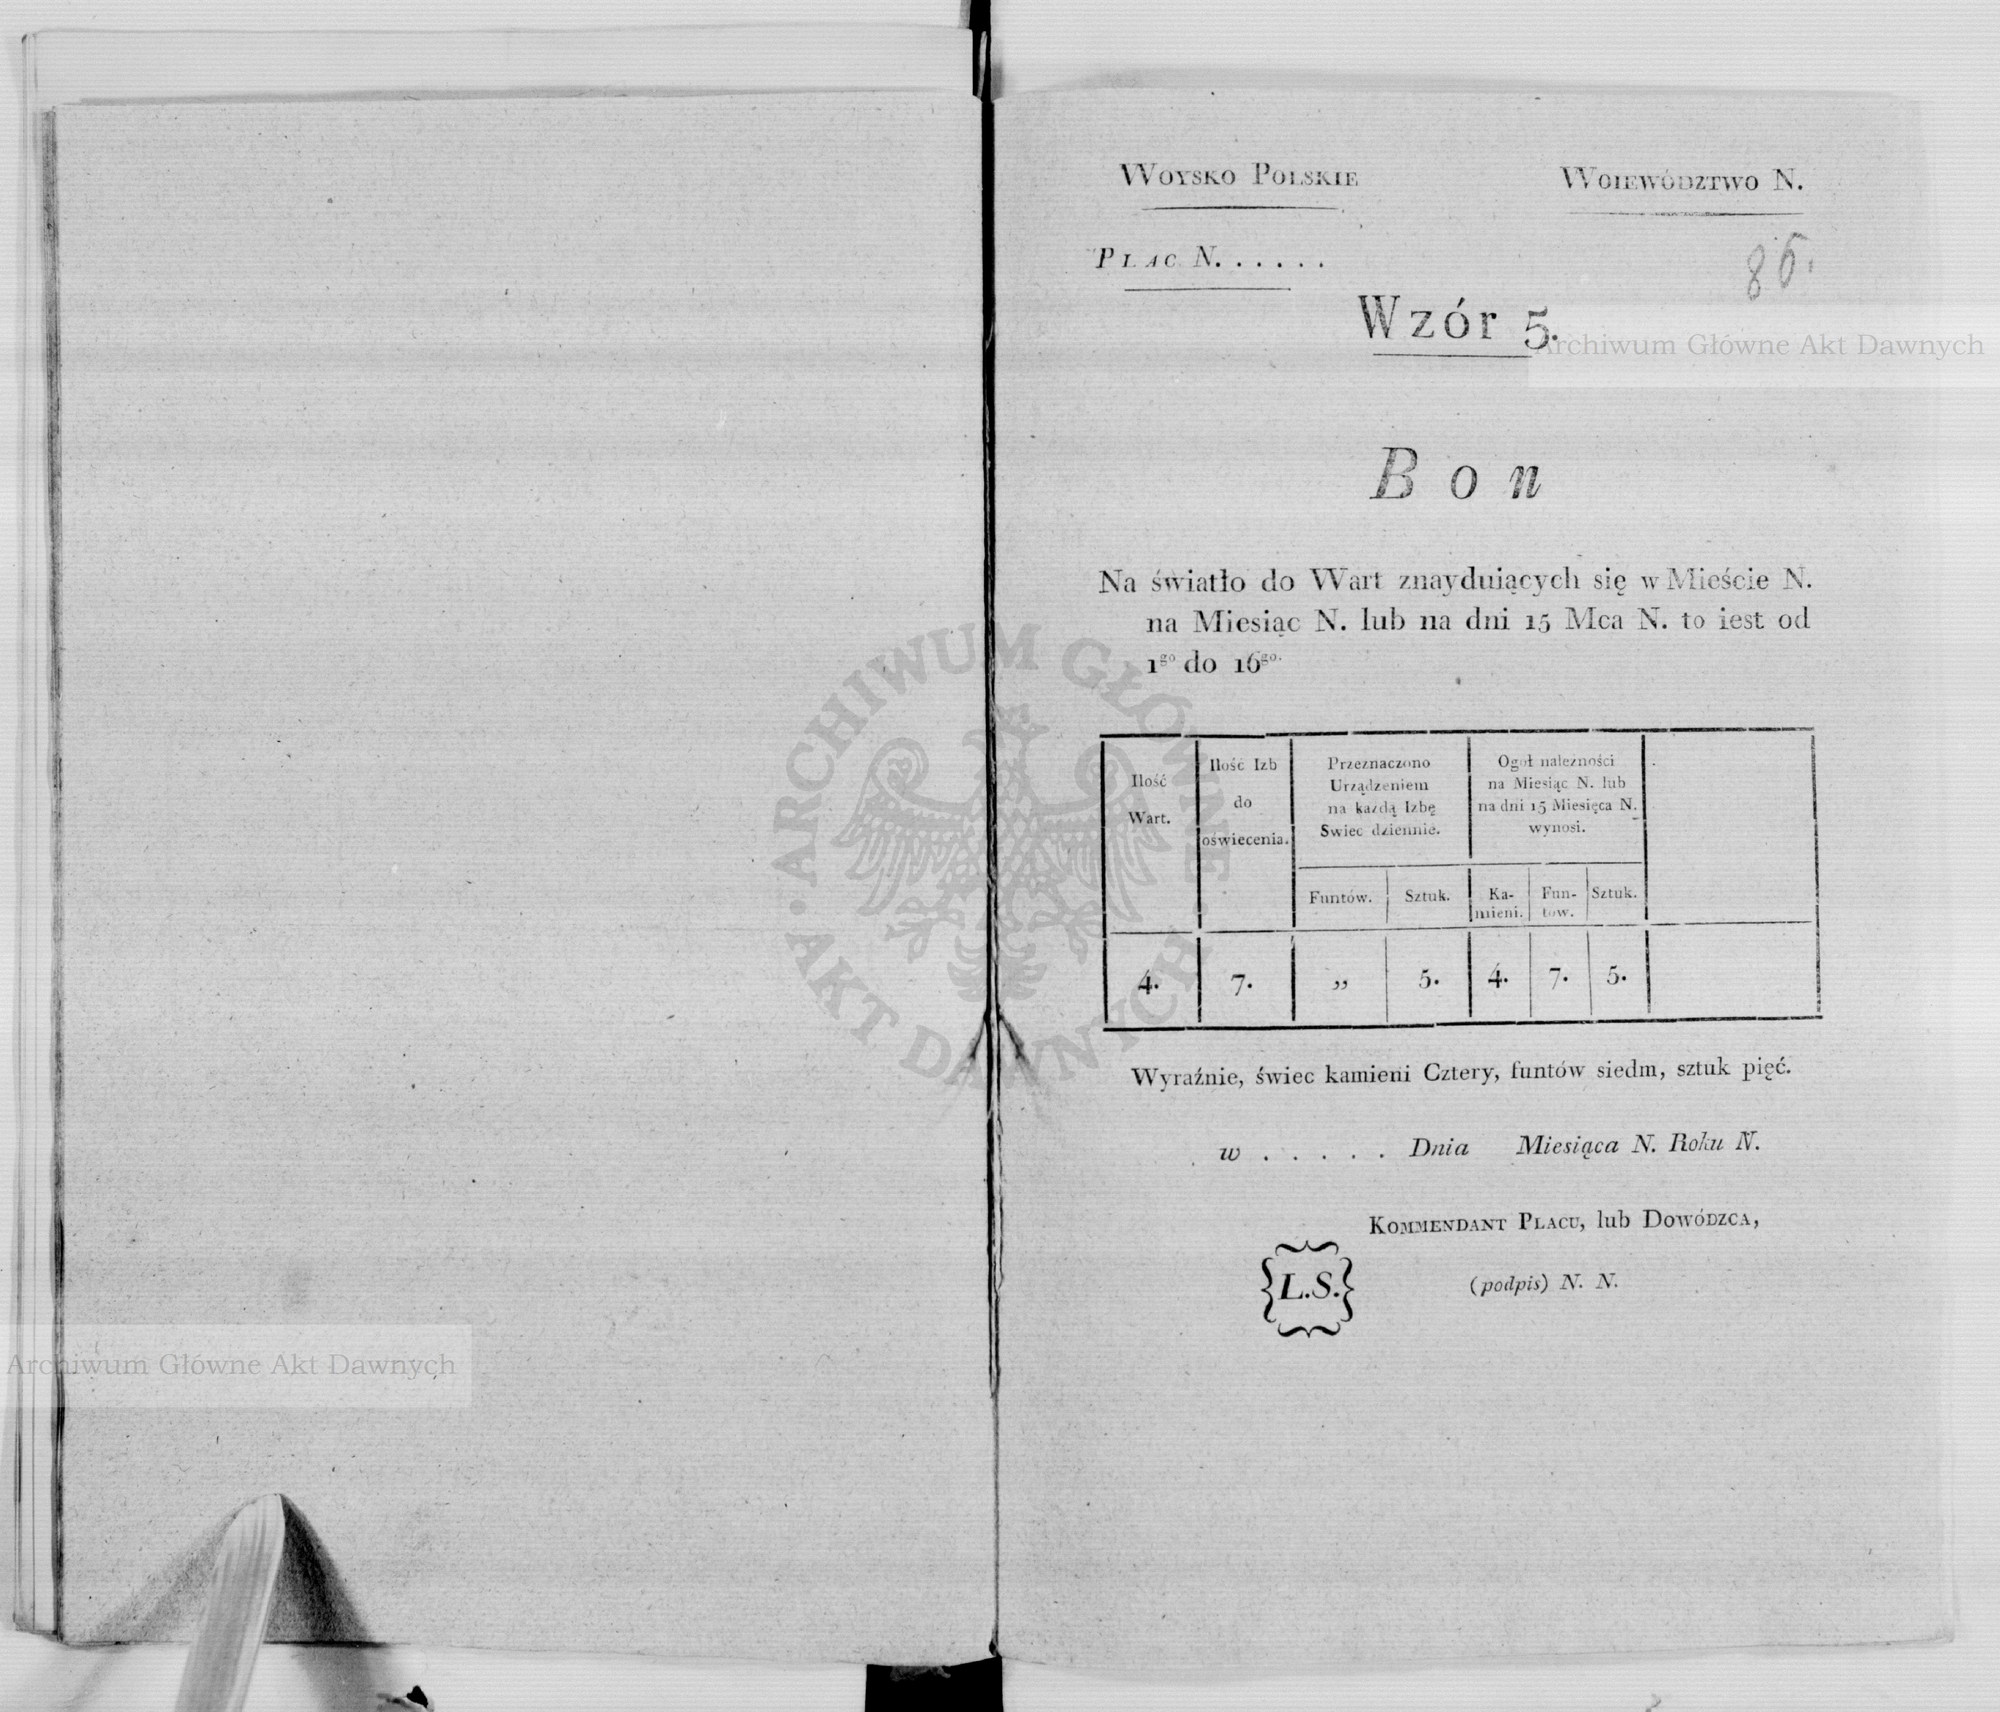 Woysko Polskie
Woiewództwo N.
Plac N. . . . . .
86.
Wzór 5.
Archiwum Główne Akt Dawnych
Bon
Na światło do Wart znayduiących się w Mieście N.
na Miesiąc N. lub na dni 15 Mca N. to iest od
1go do 16go.
Ilość
Wart.
Ilość Izb
do
oświecenia.
Przeznaczono
Urządzeniem
na każdą Izbę
Swiec dziennie.
Ogoł należności
na Miesiąc N. lub
na dni 15 Miesięca N.
wynosi.
Funtów.
Sztuk.
Ka-
mieni.
Fun-
tow.
Sztuk.
4.
7.
„
5.
4.
7.
5.
Wyraźnie, świec kamieni Cztery, funtów siedm, sztuk pięć.
w . . . . . Dnia Miesiąca N. Roku N.
Kommendant Placu, lub Dowódzca,
L.S.
(podpis) N. N.
Archiwum Główne Akt Dawnych
ARCHIWUM GŁÓWNE
AKT DAWNYCH